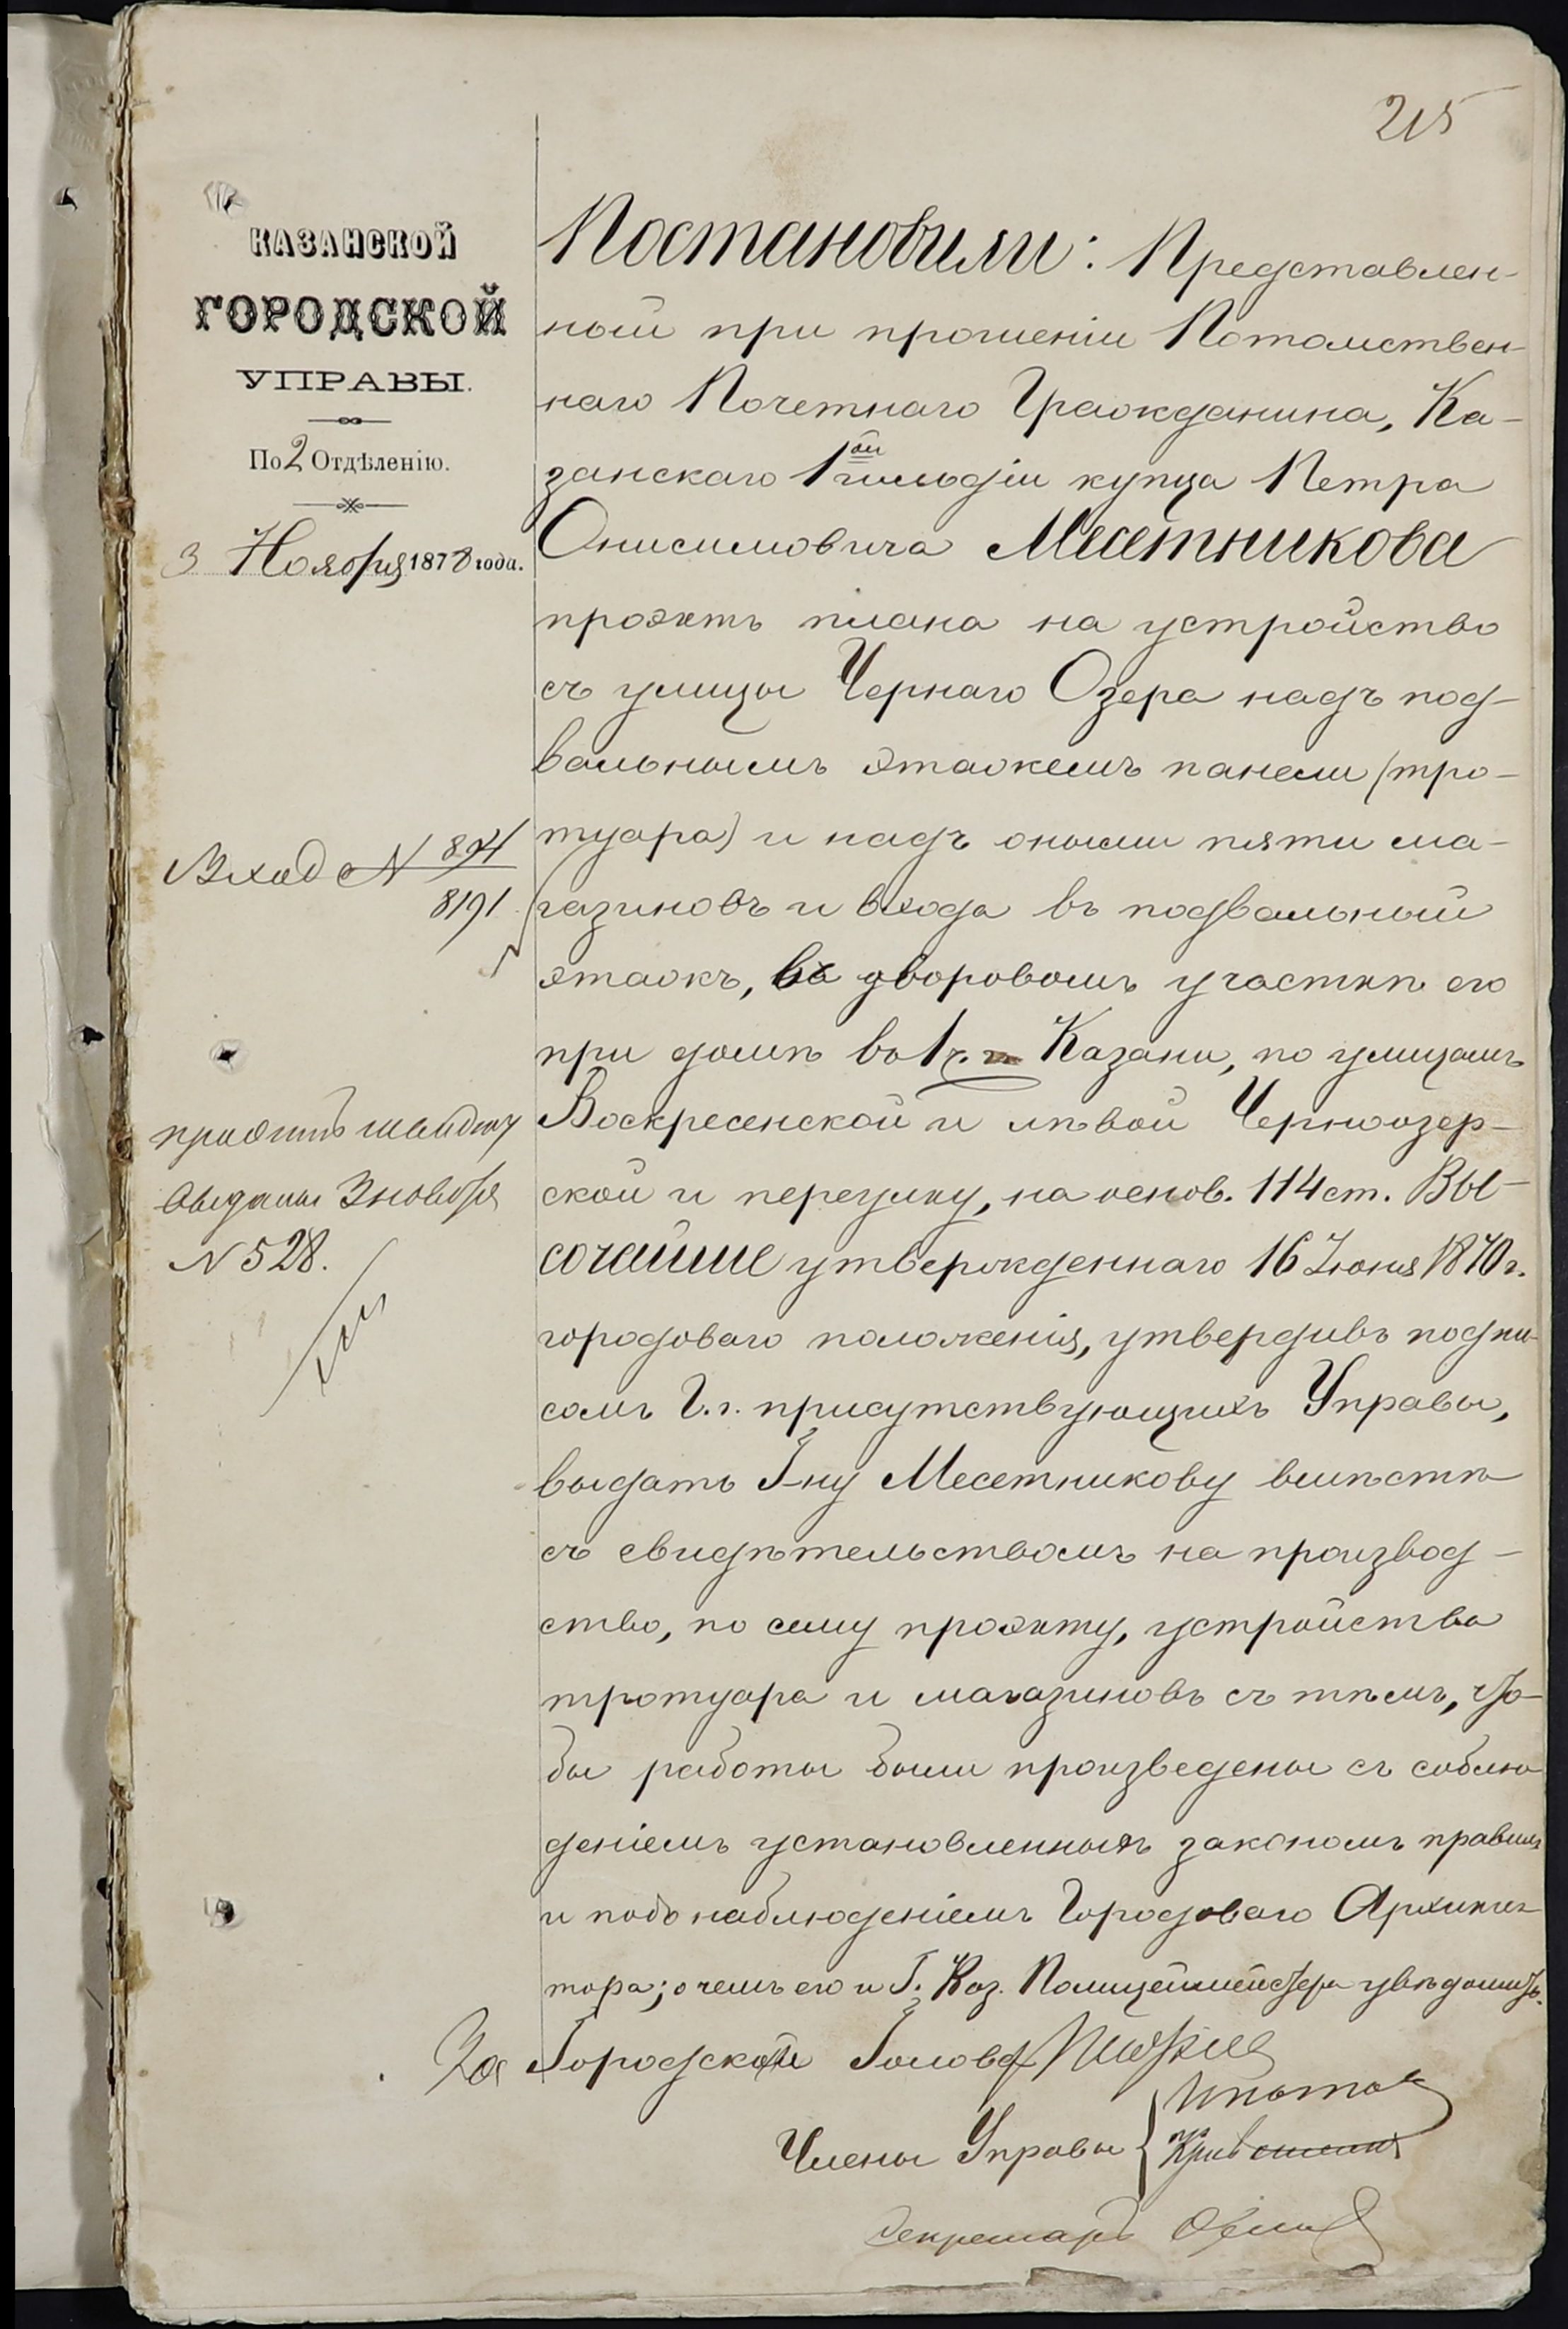 215
КАЗАНСКОЙ
ГОРОДСКОЙ
УПРАВЫ.
По 2 Отдѣленію.
3 Ноября 1878 года.
Вход № 894
8191
проэктъ и
выданы 3 ноября
№ 528.
Постановили: Представлен-
ной при прошеніи Потомствен-
наго Почетнаго Гражданина, Ка-
занскаго 1ой гильдіи купца Петра
Онисимовича Месетникова
проэктъ плана на устройство
съ улицы Чернаго Озера надъ под-
вальнымъ этажемъ панели (тро-
туара) и надъ оными пяти ма-
газиновъ и входа въ подвальный
этажъ, въ дворовомъ участкѣ его
при домѣ во 1 ч. г. Казани, по улицамъ
Воскресенской и лѣвой Черноозер-
ской и переулку, на основ. 114 ст. Вы-
сочайше утвержденнаго 16 Іюня 1870 г.
городоваго положенія, утвердивъ подпи-
сомъ Г.г. присутствующихъ Управы,
выдать Г-ну Месетникову вмѣстѣ
съ свидѣтельствомъ на производ-
ство, по сему проэкту, устройства
тротуара и магазиновъ съ тѣмъ, что-
бы работы были произведены съ соблю-
деніемъ установленныхъ закономъ правилъ
и подъ наблюденіемъ Городоваго Архитек-
тора; о чемъ его и Г. Каз. Полицеймейстера увѣдомить.
За Городской Голова
Члены Управы
Секретарь